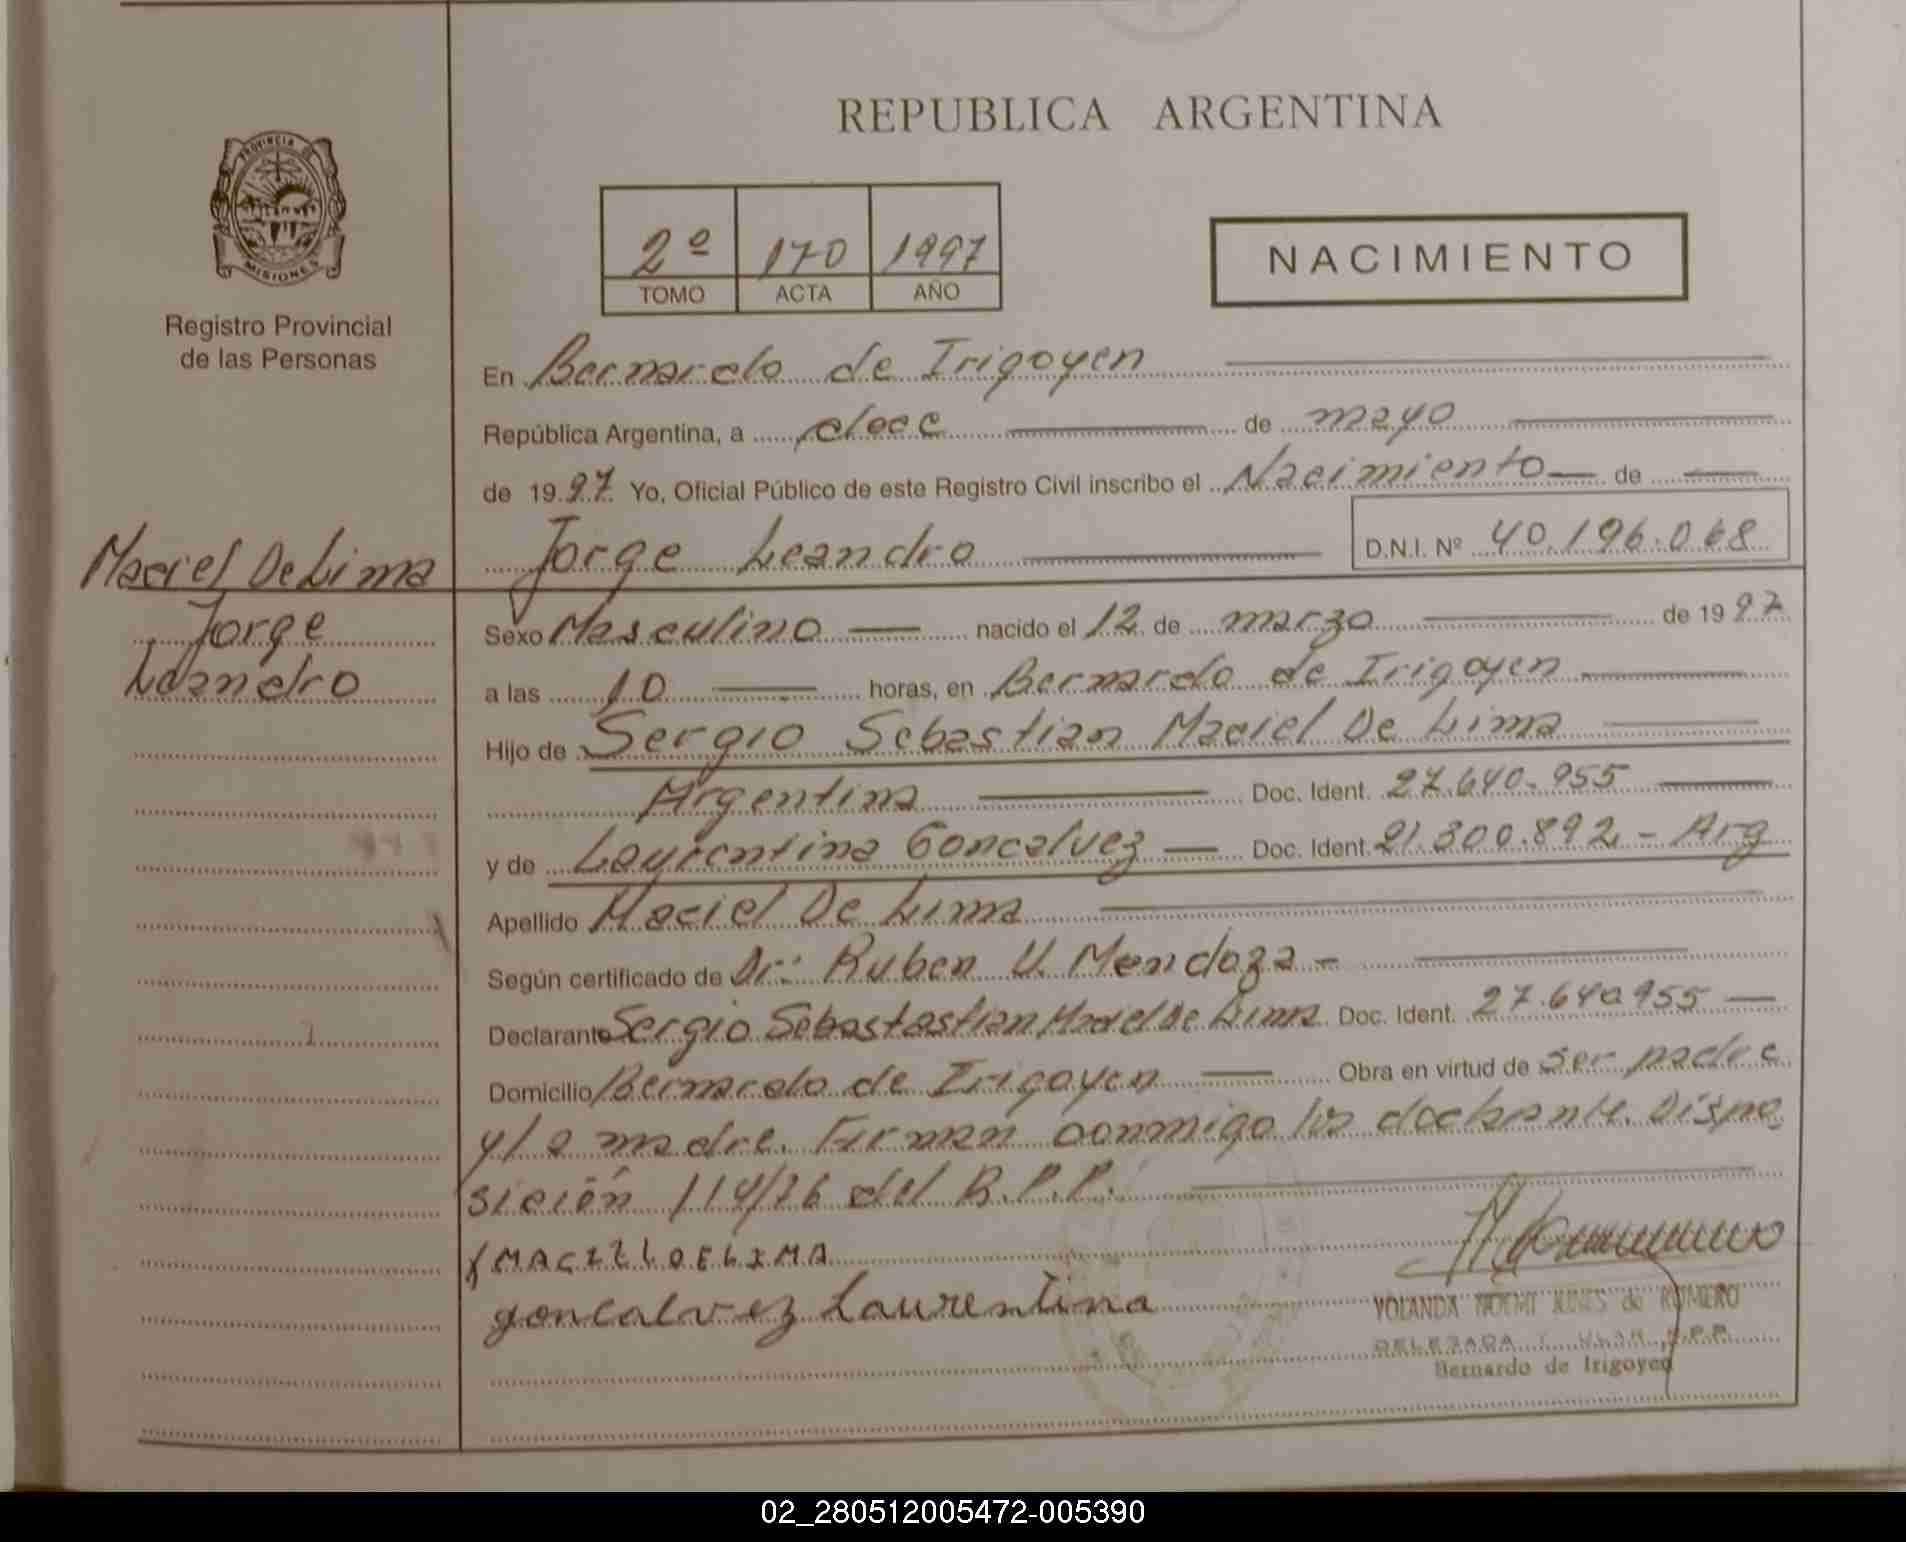 REPUBLICA ARGENTINA
PROVINCIA DE
MISIONES
Registro Provincial
de las Personas
2º 170 1997
TOMO ACTA AÑO
NACIMIENTO
En Bernardo de Irigoyen
República Argentina, a doce de mayo
de 1997 Yo, Oficial Público de este Registro Civil inscribo el Nacimiento de
Jorge Leandro D.N.I. Nº 40.196.068
Maciel De Lima
Jorge
Leandro
Sexo Masculino nacido el 12 de marzo de 1997
a las 10 horas, en Bernardo de Irigoyen
Hijo de Sergio Sebastian Maciel De Lima
Argentina Doc. Ident. 27.640.955
y de Laurentina Goncalvez Doc. Ident. 21.300.892 - Arg
Apellido Maciel De Lima
Según certificado de Dr: Ruben U. Mendoza -
Declarante Sergio Sebastastian Maciel De Lima Doc. Ident. 27.640955
Domicilio Bernardo de Irigoyen Obra en virtud de ser padre
y la madre. Firman conmigo los declarante. Dispo
sición 114/76 del R.P.P.
goncalvez Laurentina
YOLANDA NOEMI de ROMERO
DELEGADA R.P.P.
Bernardo de Irigoyen
02_280512005472-005390